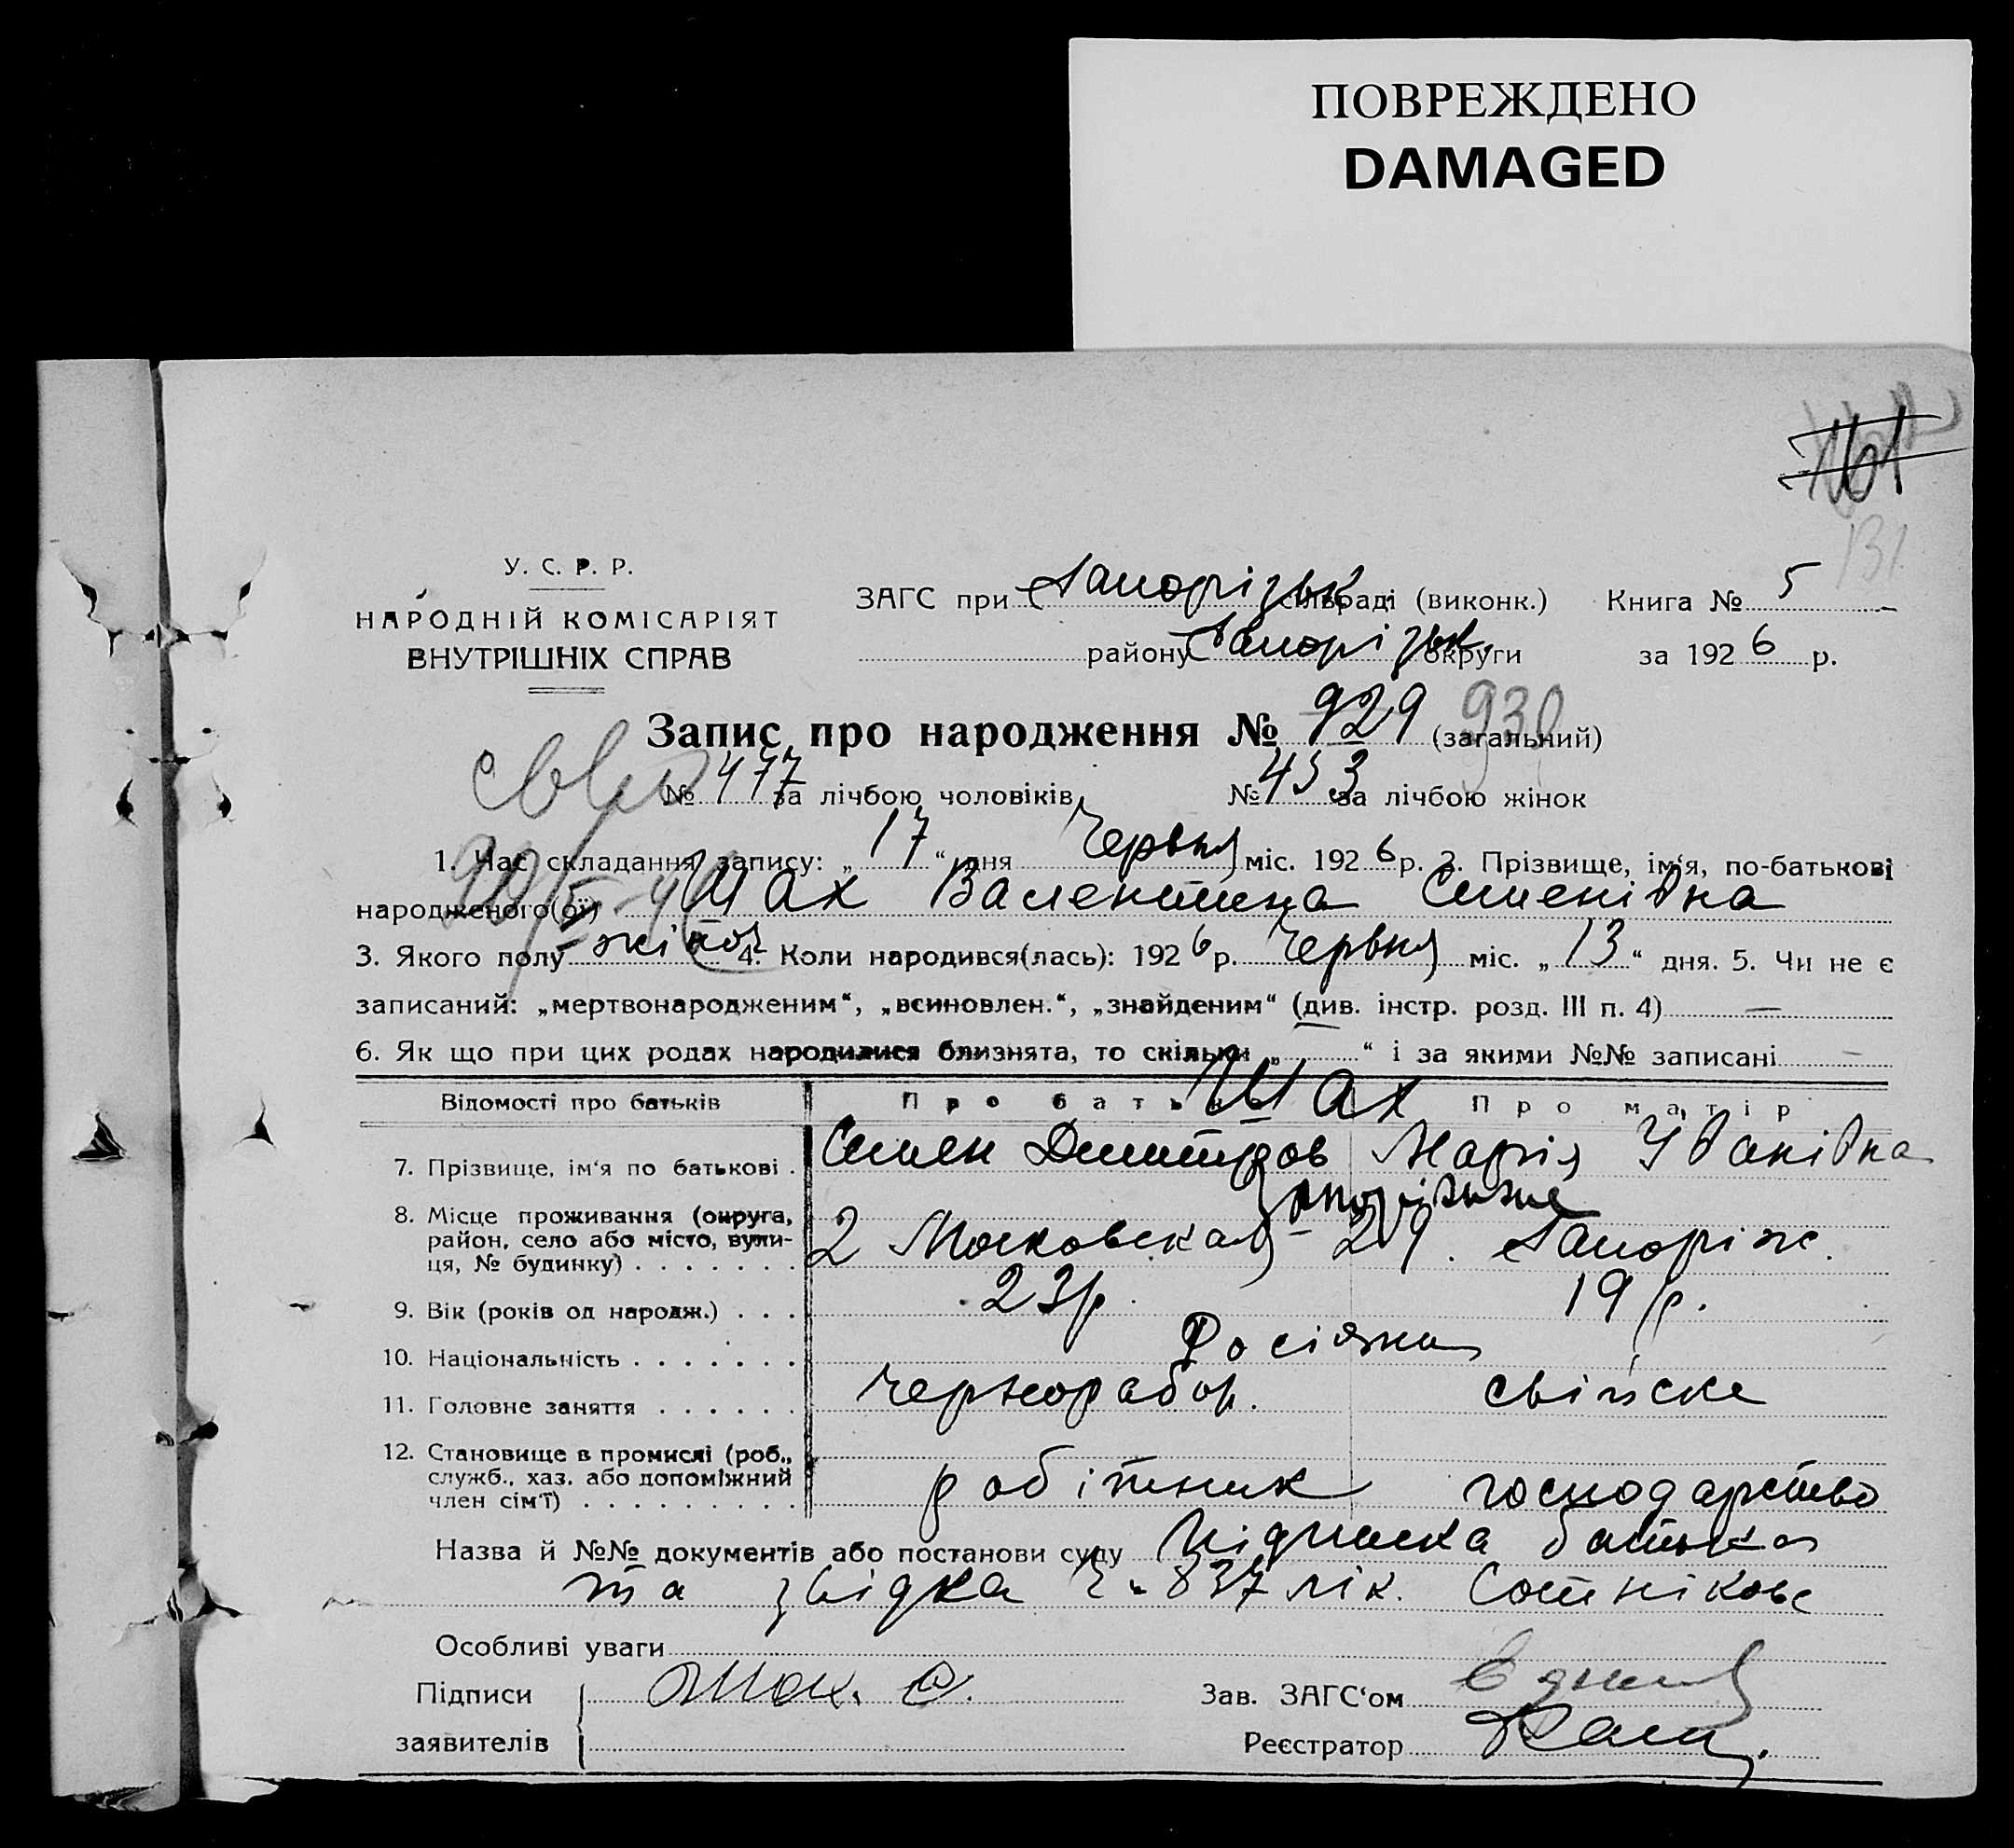 ПОВРЕЖДЕНО
DAMAGED
161
131
У. С. Р. Р.
НАРОДНІЙ КОМІСАРІЯТ
ВНУТРІШНІХ СПРАВ
ЗАГС при Запорізьк. сільраді (виконк.) Книга № 5
району Запорізьк. округи за 1926 р.
Запис про народження № 929 (загальний) 930
№ 477 за лічбою чоловіків № 453 за лічбою жінок
1. Час складання запису: „17“ дня Червня міс. 1926 р. 2. Прізвище, ім‘я, по-батькові
народженого(ої) Шах Валентина Семенівна
3. Якого полу жіноч 4. Коли народився(лась): 1926 р. Червня міс. „13“ дня. 5. Чи не є
записаний: „мертвонародженим“, „всиновлен.“, „знайденим“ (див. інстр. розд. III п. 4) —
6. Як що при цих родах народилися близнята, то скільки „ “ і за якими №№ записані —
Відомості про батьків Про батька Шах Про матір
7. Прізвище, ім‘я по батькові . Семен Дмитров Марія Іванівна
8. Місце проживання (округа, район, село або місто, вулиця, № будинку) . . . . . . . 2 Московская - 29. Запоріж.
9. Вік (років од народж.) . . . 23 р. 19 р.
10. Національність . . . . . . . Росіяни
11. Головне заняття . . . . . . Чернораб. свійске
12. Становище в промислі (роб., служб., хаз. або допоміжний член сім‘ї) . . . . . . . . . . робітник господарство
Назва й №№ документів або постанови суду Підписка батька
та звідка ч. 837 лік. Сотнікове
Особливі уваги
Підписи Шах. С. Зав. ЗАГС‘ом
заявителів Реєстратор